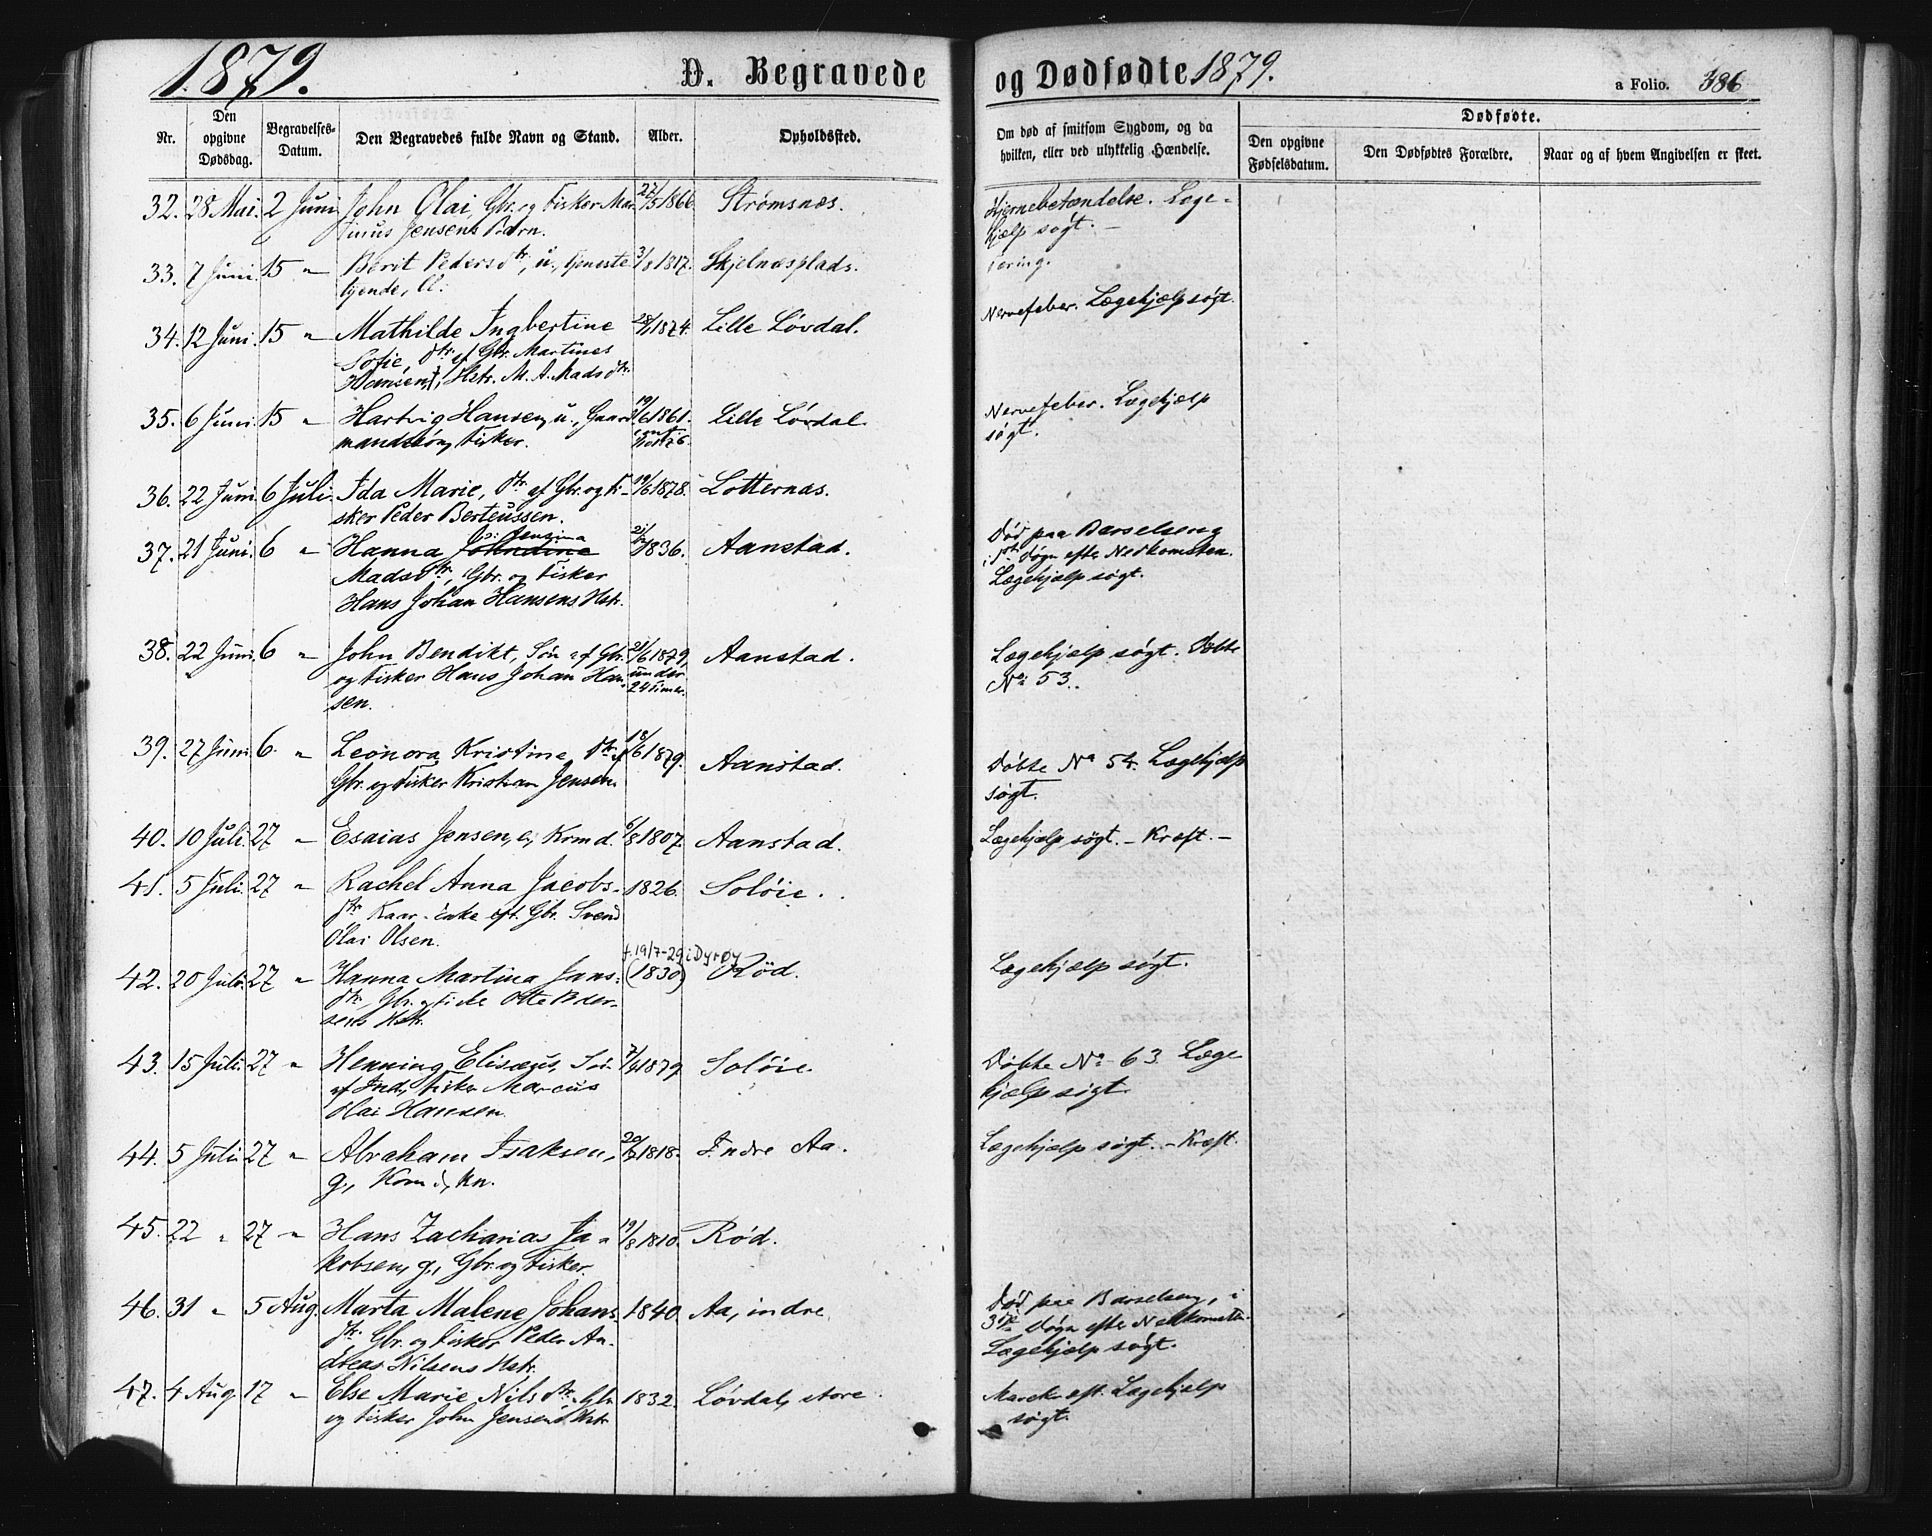 1879.
D. Begravede
og Dødfødte 1879.
a Folio. 386
Nr.
Den opgivne Dødsdag.
Begravelses-Datum.
Den Begravedes fulde Navn og Stand.
Alder.
Opholdssted.
Om død af smitsom Sygdom, og da hvilken, eller ved ulykkelig Hændelse.
Dødfødte.
Den opgivne Fødselsdatum.
Den Dødfødtes Forældre.
Naar og af hvem Angivelsen er skeet.
32. 28 Mai. 2 Juni John Olai, Gbr. og Fisker Mar- 27/5 1866. Strømsnæs. Hjernebetændelse. Læge-
tinus Jensens Barn. hjælp søgt. –
33. 7 Juni. 15 " Berit Pedersdtr, u., tjeneste 3/8 1817. Skjelnæsplads. Tæring.
tyende,
34. 12 Juni. 15 " Mathilde Ingbertine 28/1 1874. Lille Løvdal. Nervefeber. Lægehjælp søgt.
Sofie, dtr. af Gbr. Martines
Hansen, Hstr. M. A. Madsdtr.
35. 6 Juni. 15 " Hartvig Hansen, u., Gaard- 19/6 1861. Lille Løvdal. Nervefeber. Lægehjælp
mandssøn, Fisker. søgt.
36. 22 Juni. 6 Juli. Ida Marie, dtr. af Gbr. og Fi- 19/6 1878. Lotternæs.
sker Peder Berteussen.
Jensina
37. 21 Juni. 6 " Hanna Johndine 1836. Aanstad. Død paa Barselseng
Madsdtr., Gbr. og Fisker i 1ste Døgn efter Nedkomsten.
Hans Johan Hansens Hstr. Lægehjælp søgt.
38. 22 Juni. 6 " John Bendikt, Søn af Gbr. 21/6 1879, Aanstad. Lægehjælp søgt. Døbte
og Fisker Hans Johan Han- under No 53.
sen. 24 timer.
39. 27 Juni 6. " Leonora Kristine, Dtr. af 18/6 1879. Aanstad. Døbte No 54. Lægehjælp
Gbr. og Fisker Kristian Jensen. søgt.
40. 10 Juli. 27 " Esaias Jensen, e, Krmd. 6/8 1807. Aanstad. Lægehjælp søgt. – Kræft. –
41. 5 Juli. 27 " Rachel Anna Jacobs- 1826. Soløie.
dtr. Kaar-Enke eft. Gbr. Svend
Olai Olsen.
f. 19/7-29 i Dyrøy
42. 20 Juli. 27 " Hanna Martina Jans- (1830) Rød. Lægehjælp søgt.
dtr., Gbr. Otte Peder-
sens Hstr.
43. 15 Juli. 27 " Henning Elisæus, Søn 7/4 1879 Soløie. Døbte No 63. Læge
af Inds, Fisker Marcus hjælp søgt.
Olai Hansen.
44. 5 Juli 27 " Abraham Isaksen, 1818. Indre Aa. Lægehjælp søgt. – Kræft.
g.,
45. 22 " 27 " Hans Zacharias Ja- 19/8 1810. Rød.
kobsen, g., Gbr. og Fisker.
46. 31 " 5 Aug. Marta Malene Johans- 1840. Aa, indre Død paa Barselseng, i
dtr. Gbr. og Fisker Peder An- 3die Døgn efter Nedkomsten.
dreas Nilsens Hstr. Lægehjælp søgt.
47. 4 Aug. 17 " Else Marie Nilsdtr., Gbr. 1832. Løvdal, store. Lægehjælp
og Fisker John Jensens Hstr. søgt.